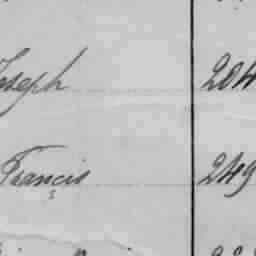 Joseph 204
Francis 249